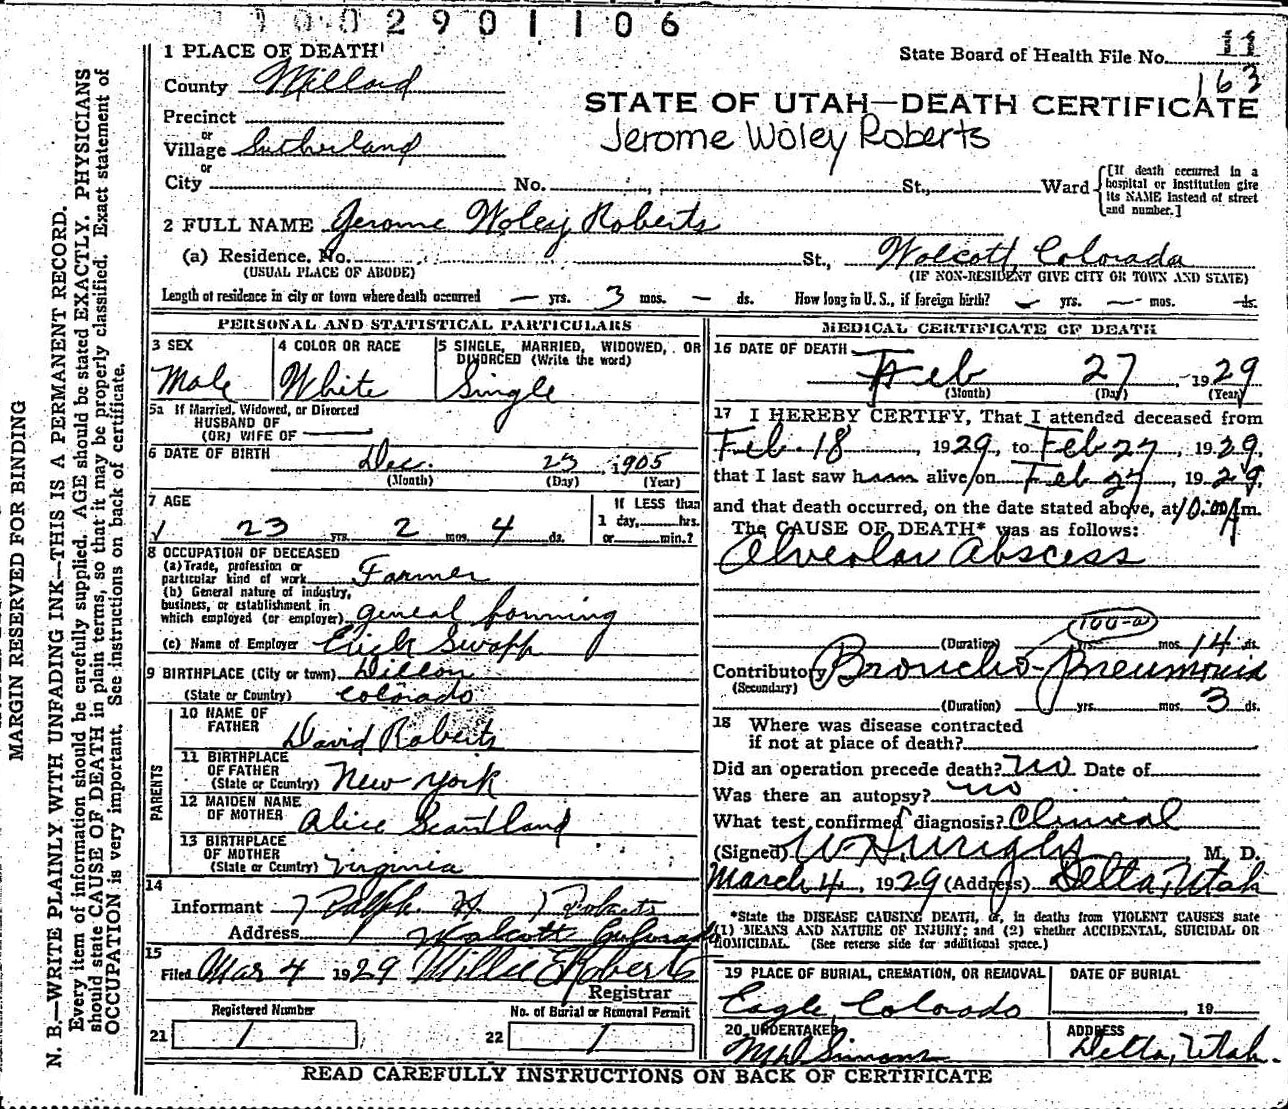 1002901106
1 PLACE OF DEATH
County Millard
Precinct
or
Village Sutherland
or
City No. St., Ward
[If death occurred in a hospital or institution give its NAME instead of street and number.]
State Board of Health File No. 11
163
STATE OF UTAH—DEATH CERTIFICATE
Jerome Woley Roberts
2 FULL NAME Jerome Woley Roberts
(a) Residence, No. St., Wolcott, Colorado
(USUAL PLACE OF ABODE) (IF NON-RESIDENT GIVE CITY OR TOWN AND STATE)
Length of residence in city or town where death occurred — yrs. 3 mos. — ds. How long in U.S., if foreign birth? — yrs. — mos. — ds.
PERSONAL AND STATISTICAL PARTICULARS
3 SEX
Male
4 COLOR OR RACE
White
5 SINGLE, MARRIED, WIDOWED, OR DIVORCED (Write the word)
Single
5a If Married, Widowed, or Divorced
HUSBAND OF
(OR) WIFE OF —
6 DATE OF BIRTH Dec. 23 1905
(Month) (Day) (Year)
7 AGE
23 yrs. 2 mos. 4 ds.
If LESS than
1 day, hrs.
or min.?
8 OCCUPATION OF DECEASED
(a) Trade, profession or
particular kind of work Farmer
(b) General nature of industry,
business, or establishment in
which employed (or employer) general farming
(c) Name of Employer Swapp
9 BIRTHPLACE (City or town) Dillon
(State or Country) Colorado
PARENTS
10 NAME OF
FATHER David Roberts
11 BIRTHPLACE
OF FATHER
(State or Country) New York
12 MAIDEN NAME
OF MOTHER Alice
13 BIRTHPLACE
OF MOTHER
(State or Country) Virginia
14
Informant Ralph H. Roberts
Address Wolcott Colorado
15
Filed Mar 4 1929 Millie E Roberts
Registrar
Registered Number
21 1
No. of Burial or Removal Permit
22 1
MEDICAL CERTIFICATE OF DEATH
16 DATE OF DEATH
Feb 27, 1929
(Month) (Day) (Year)
17 I HEREBY CERTIFY, That I attended deceased from
Feb. 18 1929, to Feb 27, 1929,
that I last saw him alive on Feb 27, 1929,
and that death occurred, on the date stated above, at 10:00 A m.
The CAUSE OF DEATH* was as follows:
Alveolar Abscess
100-a
(Duration) yrs. mos. 14 ds.
Contributory Broncho-Pneumonia
(Secondary)
(Duration) yrs. mos. 3 ds.
18 Where was disease contracted
if not at place of death?
Did an operation precede death? no Date of
Was there an autopsy? no
What test confirmed diagnosis? Clinical
(Signed) M. D.
March 4, 1929 (Address) Delta, Utah
*State the DISEASE CAUSING DEATH, or, in deaths from VIOLENT CAUSES state
(1) MEANS AND NATURE OF INJURY; and (2) whether ACCIDENTAL, SUICIDAL OR
HOMICIDAL. (See reverse side for additional space.)
19 PLACE OF BURIAL, CREMATION, OR REMOVAL
Eagle, Colorado
DATE OF BURIAL
19
20 UNDERTAKER
Simons
ADDRESS
Delta, Utah.
READ CAREFULLY INSTRUCTIONS ON BACK OF CERTIFICATE
MARGIN RESERVED FOR BINDING
N. B.—WRITE PLAINLY WITH UNFADING INK—THIS IS A PERMANENT RECORD.
Every item of information should be carefully supplied. AGE should be stated EXACTLY. PHYSICIANS
should state CAUSE OF DEATH in plain terms, so that it may be properly classified. Exact statement of
OCCUPATION is very important. See instructions on back of certificate.